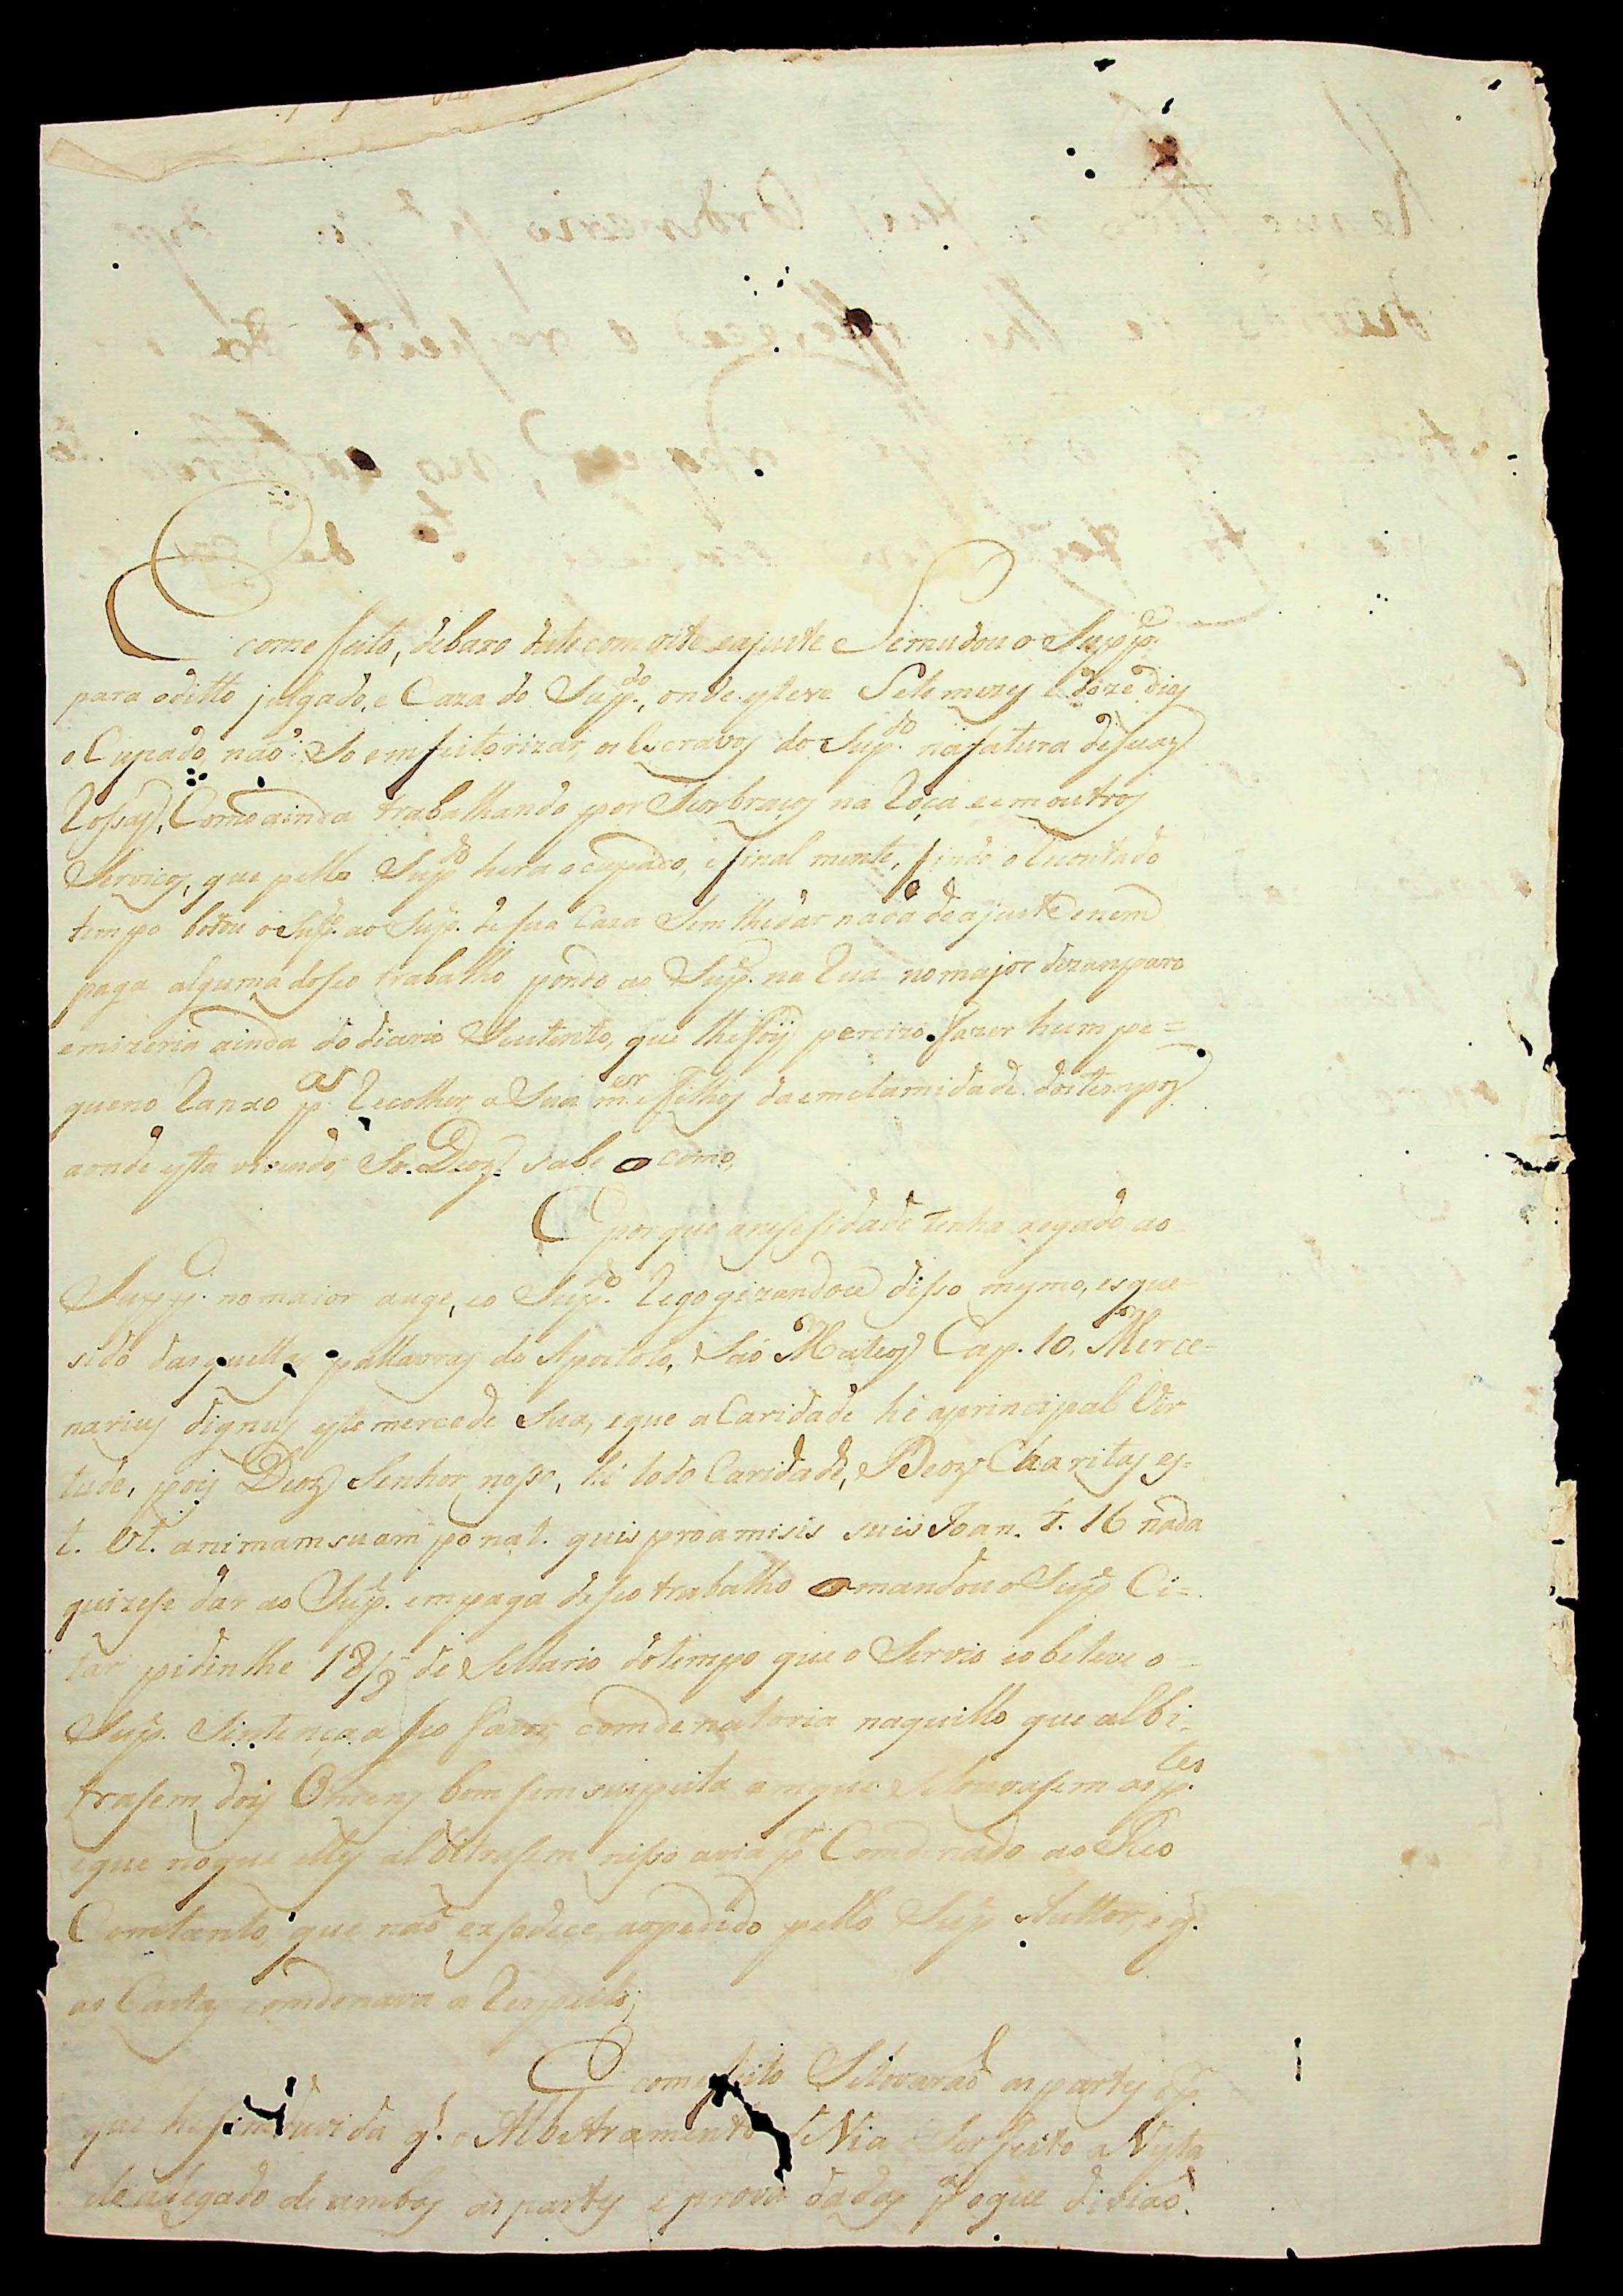 E come feito, debaxo deste comvite eajuste Semudou o Supp.e
para oditto julgado, e Caza do Sup.do, onde esteve Sete mezes e doze dias
oCupado, naõ So emfeitorizar, os Escravos do Sup.do nafatura deSuas
Rossas, Como ainda trabalhando por Seos braços na Roça eemoutros
Serviços, que pello Sup.do hera ocupado, efinal mente, findo o Contado
tempo botou oSup.do ao Sup.e desua Caza Sem lhedar nada deajuste enem
paga alguma doseo trabalho pondo ao Sup.e na Rua nomajor dezanparo
emizeria ainda dodiario Sustento, que lhefoy percizo fazer hum pe=
queno Ranxo p.a Recolher a Sua m.er eFilhos daemclamidade dostempos
aonde esta vivendo, So. Deos sabe o como,
E porque anesesidade tenha xegado ao
Supp.e no maior auge, eo Sup.do Regogizandoce disso mesmo, esque-
sido dasquellas pallavras do Apostolo, Saõ Mateos Cap. 10. Merce=
narius dignus este mercede Sua, eque aCaridade he aprincipal Vir
tude, pois Deos Senhor nosso, he todo Caridade, Deos Charitas es=
t. Ut. animam suam ponat. quis pro amisis suis Joan. 4. 16 nada
quizese dar ao Sup.e empaga deseo trabalho mandou o Sup.e Ci=
tar pidinlhe 18/8 de Sellario dotempo que o Servio eobeteve o
Sup.e Sintença a seo favor comdenatoria naquillo que albi-
trasem dois Omens bom sem suspeita emque Selouvasem as p.tes
eque noque elles albitrasem nisso avia p.r Comdenado ao Reo
Comtanto, que naõ exsedece aopedido pello Sup.e Auttor, e q.
as Custas comdenava a Respeito;
E comefeito Selovaraõ as partes
que hesimduvida q.e o Albetramento deVia Ser feito a Vista
do alegado de ambas as partes e prova dadas p.a oque diviaõ.